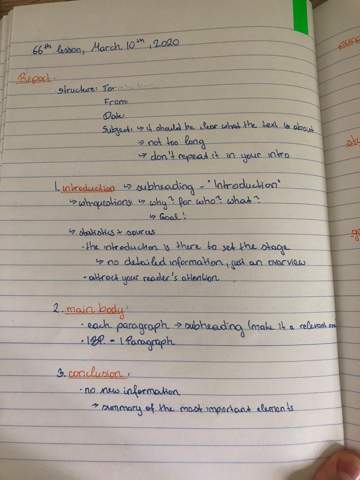 66th lesson, March 10th, 2020
Report:
structure: To:
From:
Date:
Subject: → it should be clear what the text is about
→ not too long
→ don't repeat it in your intro
1. introduction → subheading - "Introduction"
→ wh-questions → why? for who? what?
→ Goal!
→ statistics +
• the introduction is there to set the stage
→ no detailed information, just an overview
• attract your reader's attention
2. main body:
• each paragraph → subheading (make it a relevant
• 1 BP. = 1 Paragraph
3. conclusion:
• no new information
→ summary of the most important elements